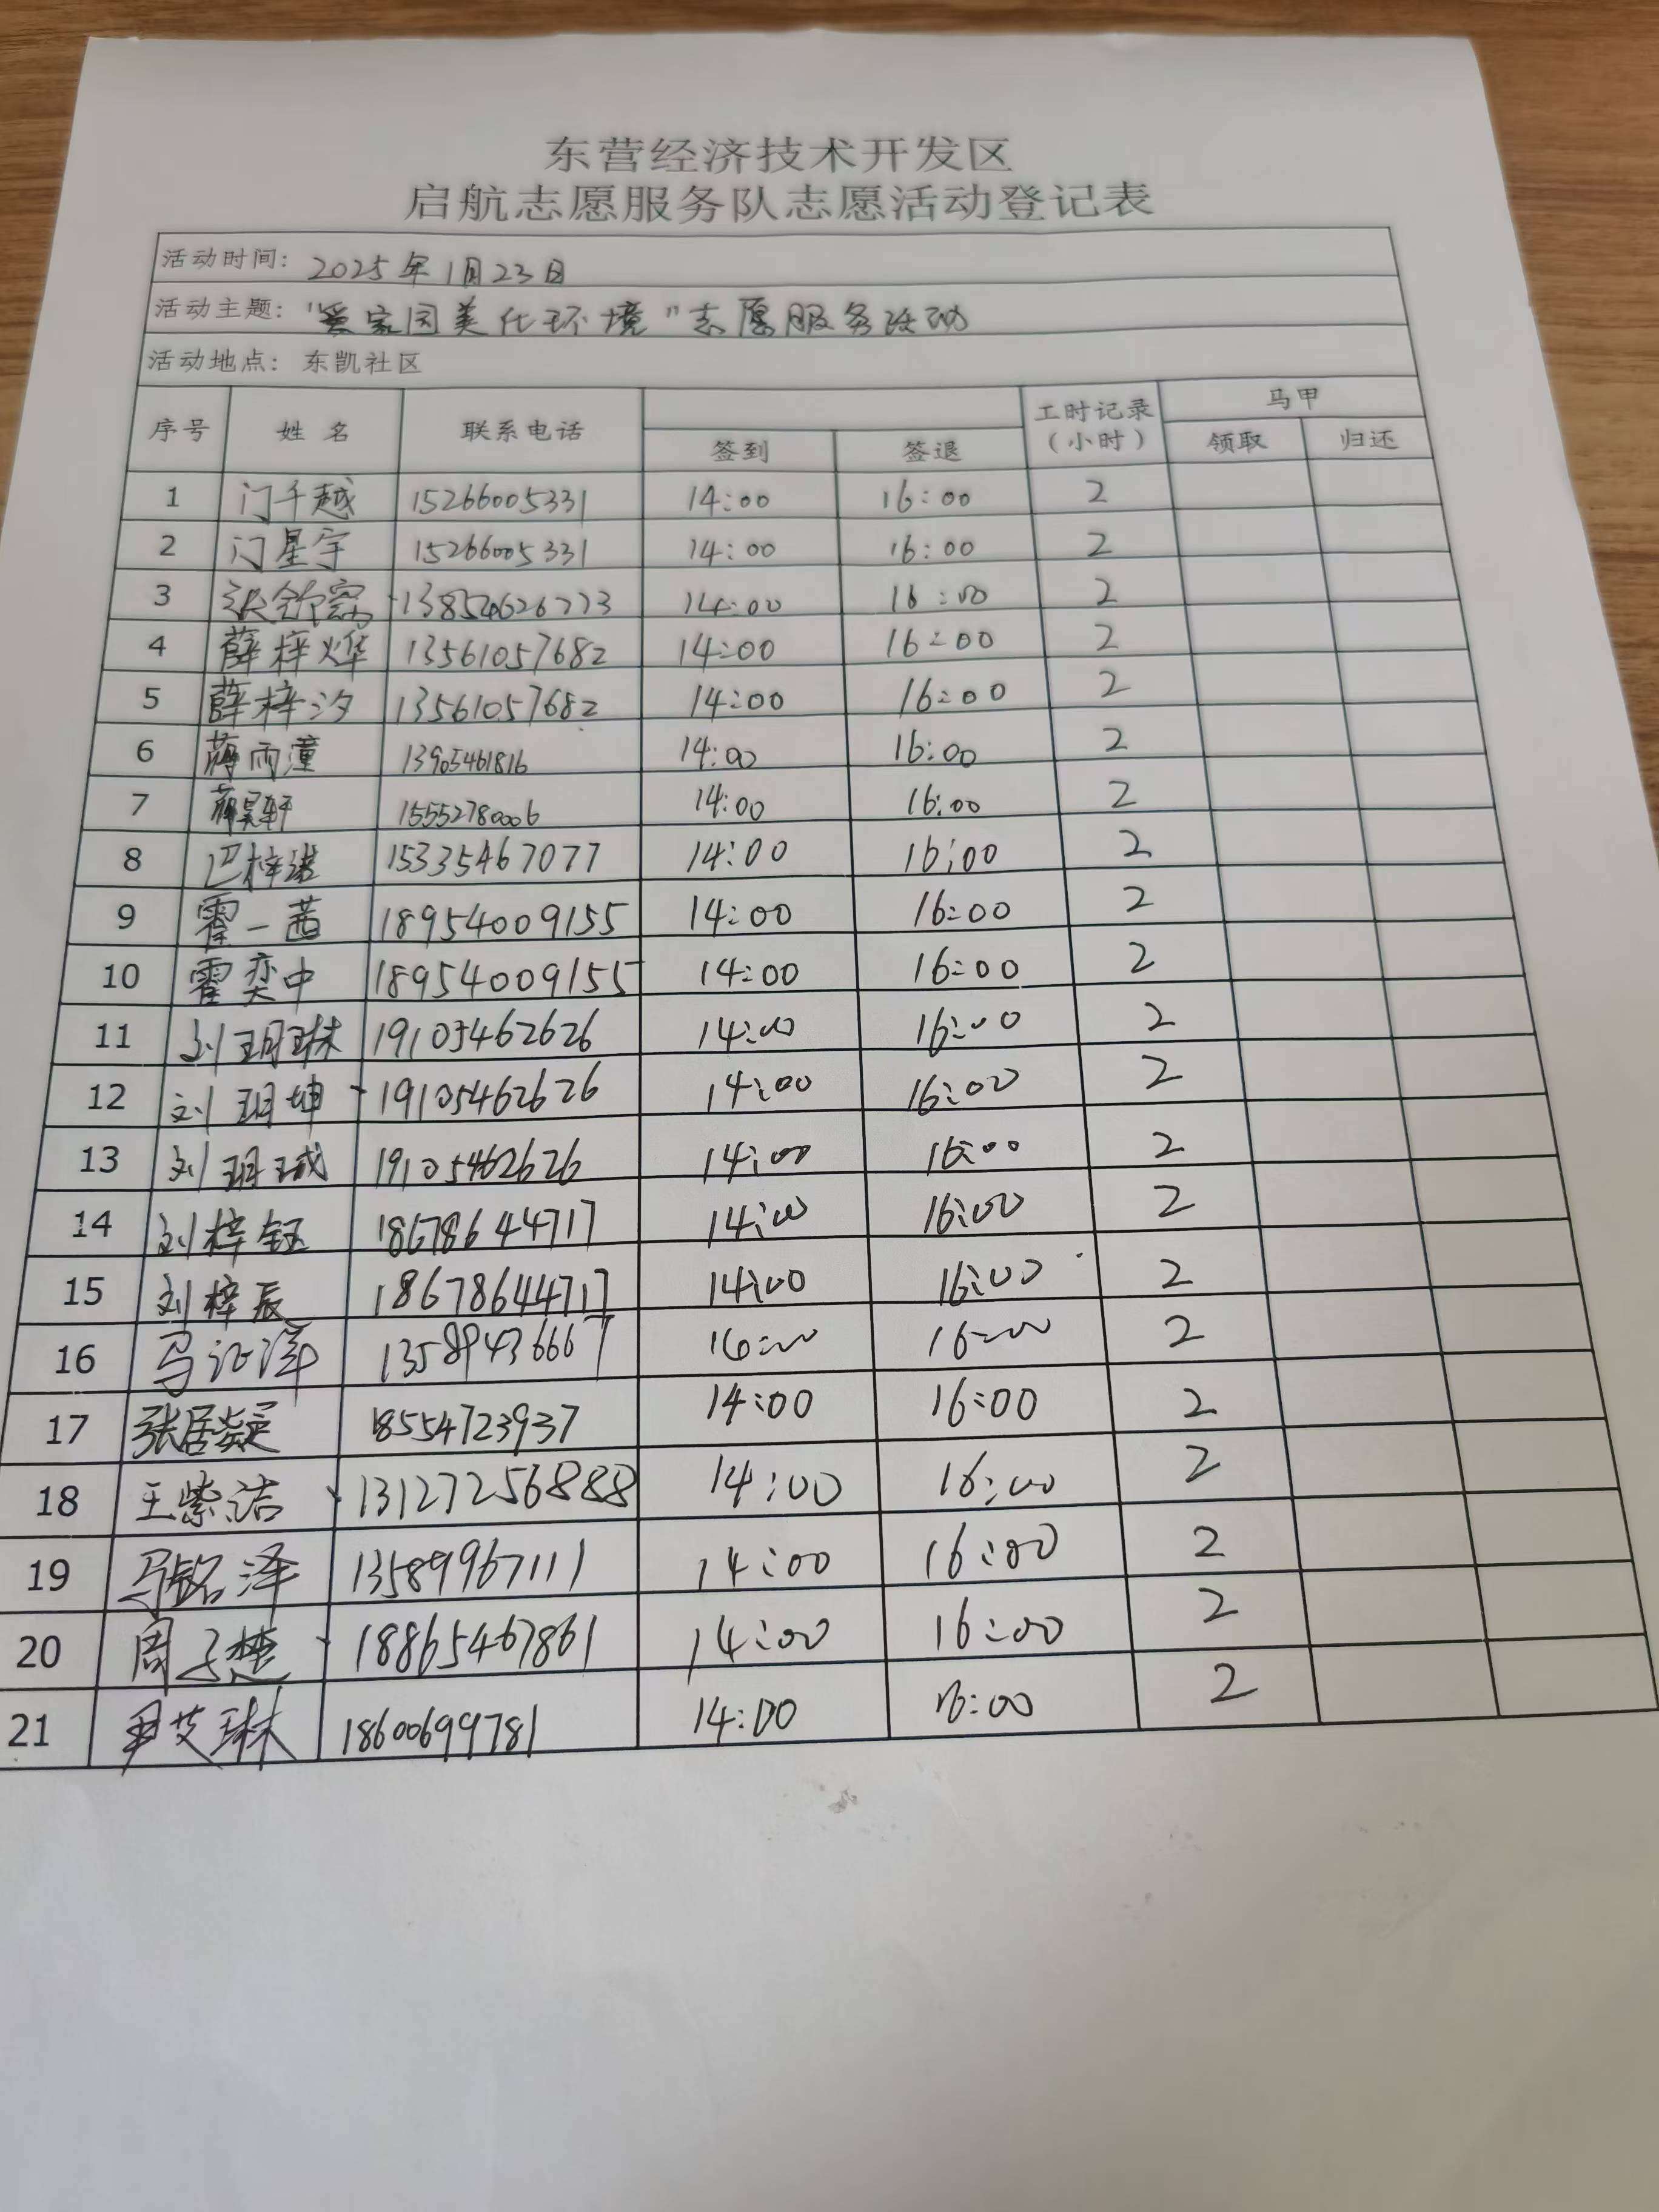 东营经济技术开发区
启航志愿服务队志愿活动登记表
活动时间: 2025年1月23日
活动主题: "爱家园美化环境"志愿服务活动
活动地点: 东凯社区
序号 姓名 联系电话 签到 签退 工时记录(小时) 马甲 领取 归还
1 门千越 15266005331 14:00 16:00 2
2 门星宇 15266005331 14:00 16:00 2
3 张舒 14:00 16:00 2
4 薛梓烨 13561057682 14:00 16:00 2
5 薛梓汐 13561057682 14:00 16:00 2
6 蒋雨潼 13905461816 14:00 16:00 2
7 昊轩 15552780006 14:00 16:00 2
8 巴梓诺 15335467077 14:00 16:00 2
9 霍一茜 18954009155 14:00 16:00 2
10 霍奕中 18954009155 14:00 16:00 2
11 刘玥琳 19105462626 14:00 16:00 2
12 刘玥坤 19105462626 14:00 16:00 2
13 刘玥珹 19105462626 14:00 16:00 2
14 刘梓钰 18678644717 14:00 16:00 2
15 刘梓辰 18678644717 14:00 16:00 2
16 马沚洋 13589436667 16:00 16:00 2
17 张居 18554723937 14:00 16:00 2
18 王紫洁 13127256888 14:00 16:00 2
19 马铭泽 13589967111 14:00 16:00 2
20 周子楚 18865467861 14:00 16:00 2
21 尹艾琳 18600699781 14:00 16:00 2